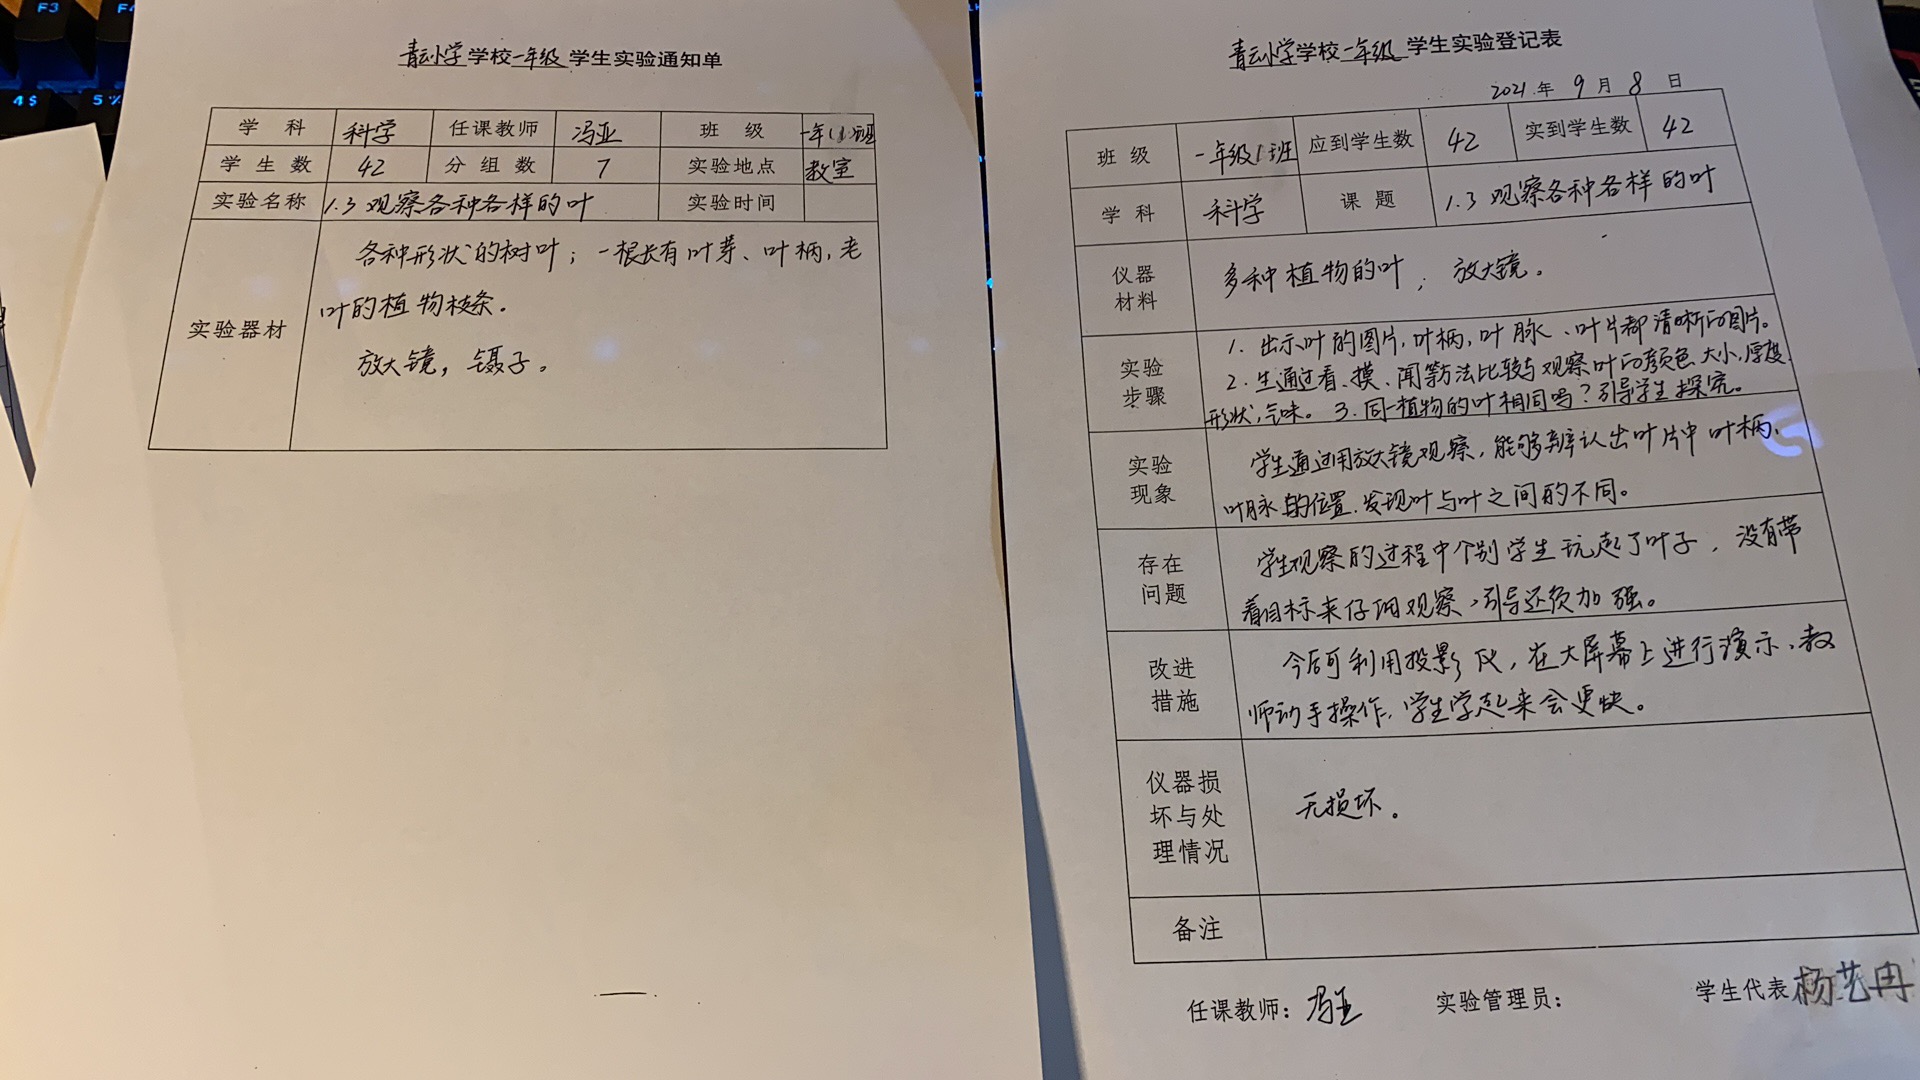 F3
F4
4 $
5 %
青云小学学校一年级学生实验通知单
学科 科学 任课教师 冯亚 班级 一年(1)班
学生数 42 分组数 7 实验地点 教室
实验名称 1.3 观察各种各样的叶 实验时间
实验器材
各种形状的树叶；一根长有叶芽、叶柄，老
叶的植物枝条。
放大镜，镊子。
青云小学学校一年级学生实验登记表
2021年9月8日
班级 一年级1班 应到学生数 42 实到学生数 42
学科 科学 课题 1.3 观察各种各样的叶
仪器
材料
多种植物的叶；放大镜。
实验
步骤
1. 出示叶的图片，叶柄，叶脉、叶片都清晰的图片。
2. 生通过看、摸、闻等方法比较与观察叶的颜色、大小，厚度，
形状，气味。3. 同一植物的叶相同吗？引导学生探究。
实验
现象
学生通过用放大镜观察，能够辨认出叶片中叶柄、
叶脉的位置，发现叶与叶之间的不同。
存在
问题
学生观察的过程中个别学生玩起了叶子，没有带
着目标来仔细观察，引导还须加强。
改进
措施
今后可利用投影仪，在大屏幕上进行演示、教
师动手操作，学生学起来会更快。
仪器损
坏与处
理情况
无损坏。
备注
任课教师：冯亚 实验管理员： 学生代表 杨艺冉